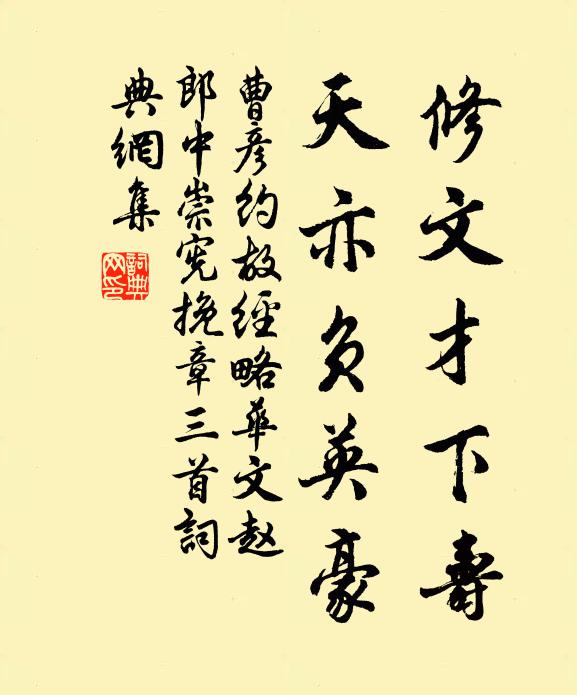 修文才下壽
天亦負英豪
曹彥約故經略華文赵
郎中崇宪挽章三首詞
典網集
詞典網印